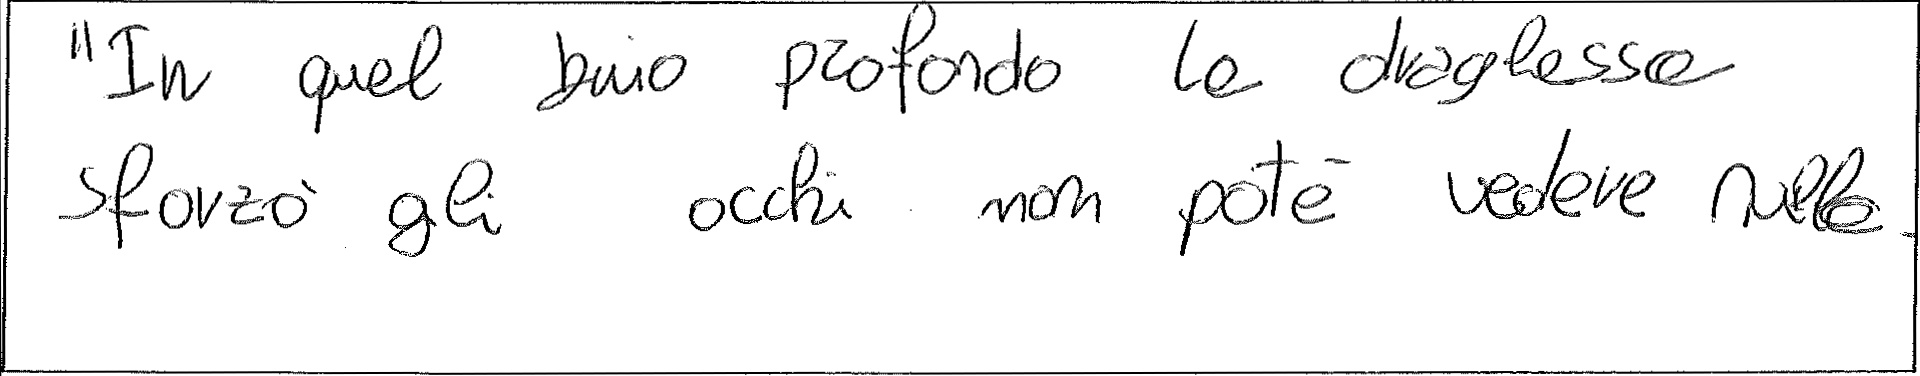 "In quel buio profondo la draghessa
sforzò gli occhi non poté vedere nulla.